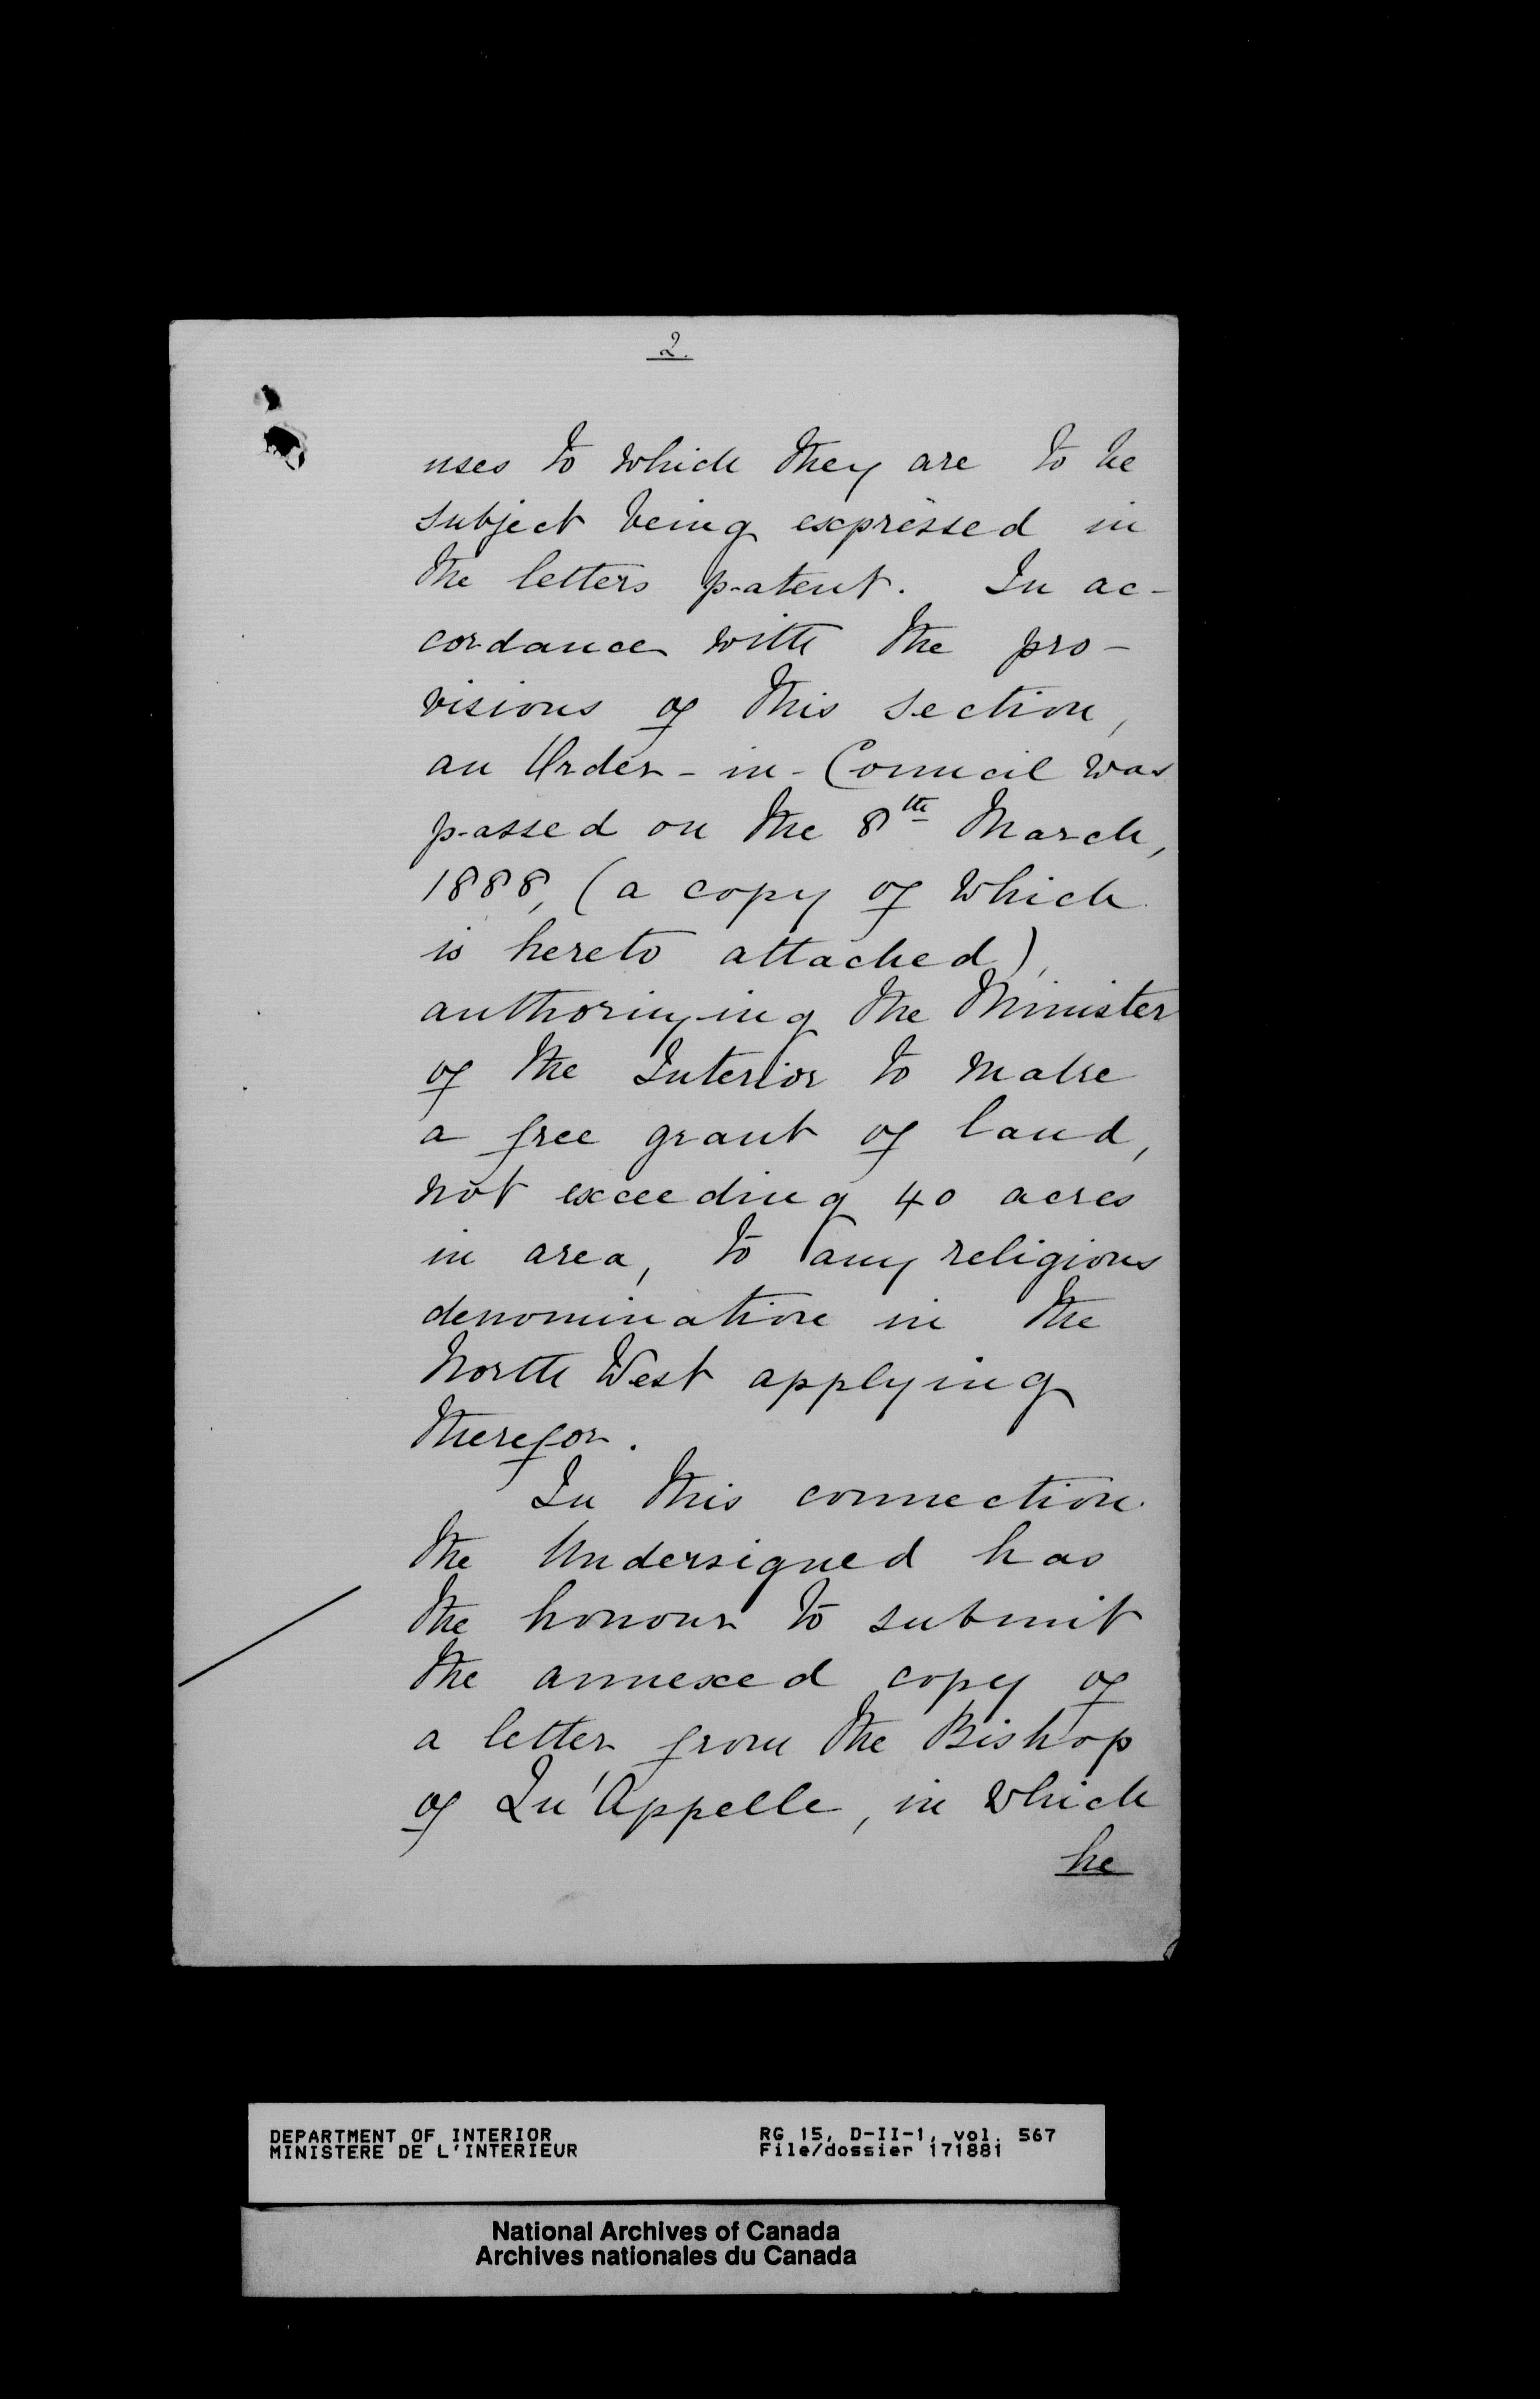 2.
uses to which they are to be
subject being expressed in
the letters patent. In ac-
cordance with the pro-
visions of this section,
an Order-in-Council was
passed on the 8th March,
1888, (a copy of which
is hereto attached),
authorizing the Minister
of the Interior to make
a free grant of land,
not exceeding 40 acres
in area, to any religious
denomination in the
North West applying
therefor.
In this connection
the Undersigned has
the honour to submit
the annexed copy of
a letter from the Bishop
of Qu'Appelle, in which
he
DEPARTMENT OF INTERIOR RG 15, D-II-1, vol. 567
MINISTERE DE L'INTERIEUR File/dossier 171881
National Archives of Canada
Archives nationales du Canada